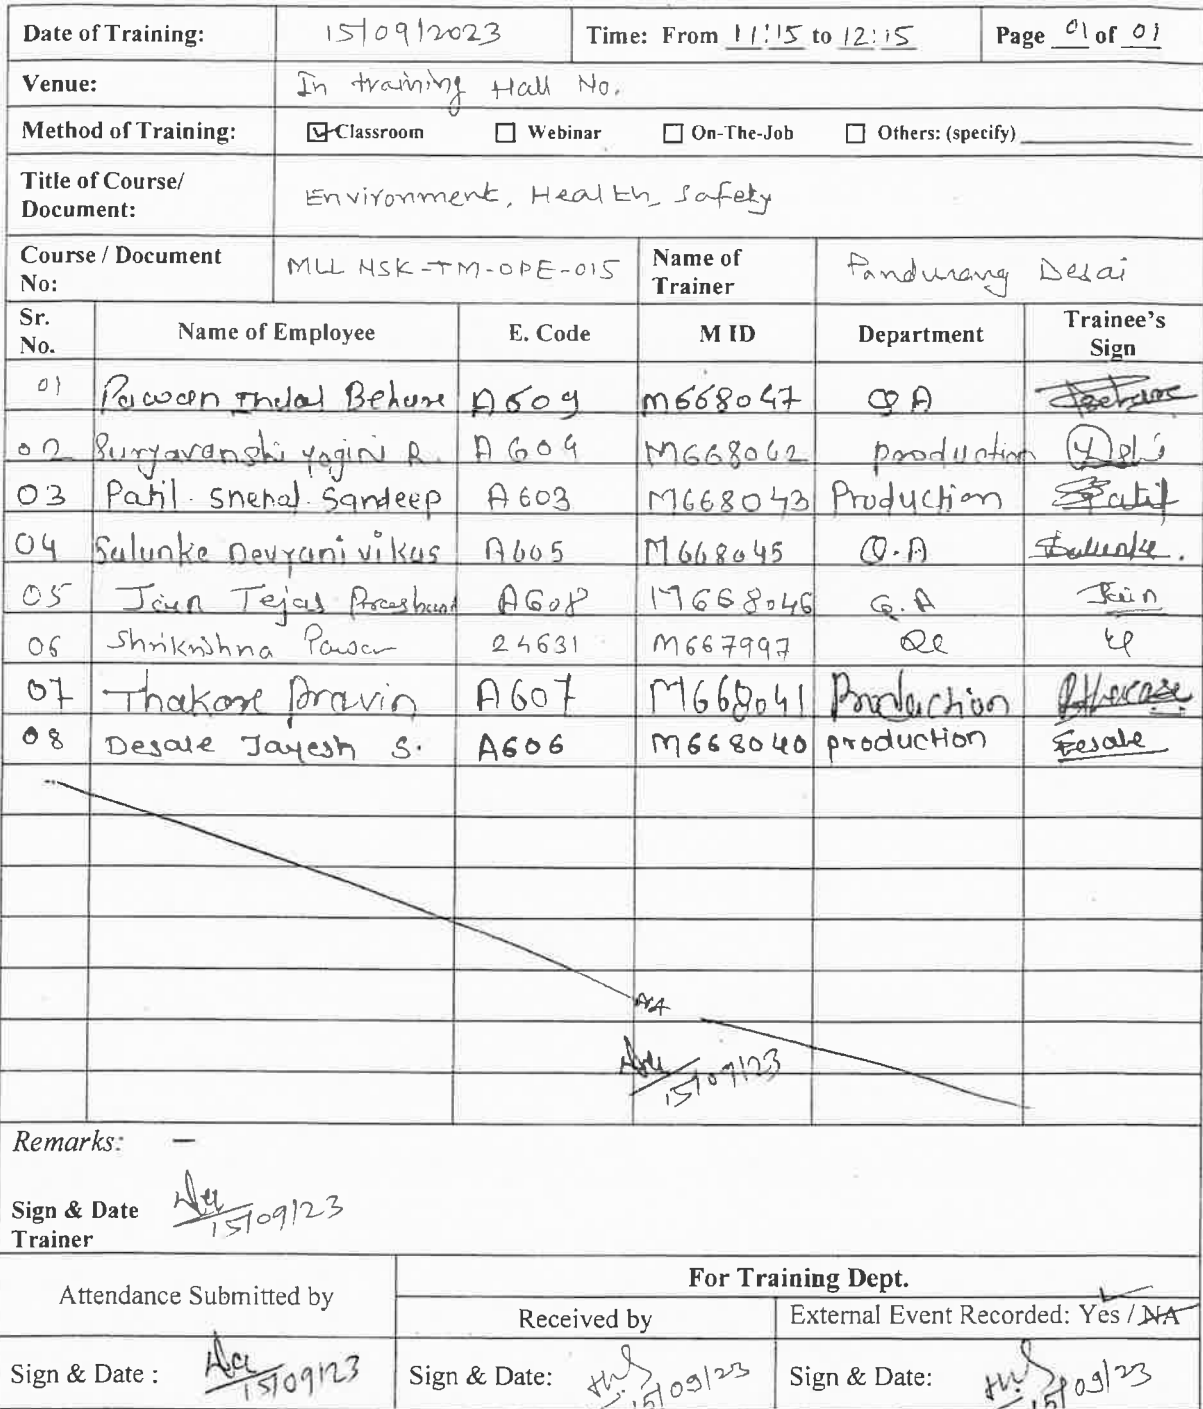 Date of Training: 15/09/2023 Time: From 11:15 to 12:15 Page 01 of 01
Venue: In training Hall No.
Method of Training: Classroom Webinar On-The-Job Others: (specify)
Title of Course/
Document: Environment, Health, Safety
Course / Document
No: MLL NSK-TM-OPE-015 Name of
Trainer Pandurang Desai
Sr.
No. Name of Employee E. Code M ID Department Trainee's
Sign
01 Behure A609 M668047 QA
02 Suryavanshi yogini R. A604 M668042 production
03 Patil. Snehal. Sandeep A603 M668043 Production Patil
04 Salunke Devyani vikas A605 M668045 Q.A Salunke.
05 Jain Tejas A608 M668046 Q.A Jain
06 Shrikrishna Pawar 24631 M667997
07 Thakare Pravin A607 M668041 Production
08 Desale Jayesh S. A606 M668040 production Desale
NA
15/09/23
Remarks: —
Sign & Date
Trainer 15/09/23
Attendance Submitted by For Training Dept.
Received by External Event Recorded: Yes / NA
Sign & Date : 15/09/23 Sign & Date: 15/09/23 Sign & Date: 15/09/23